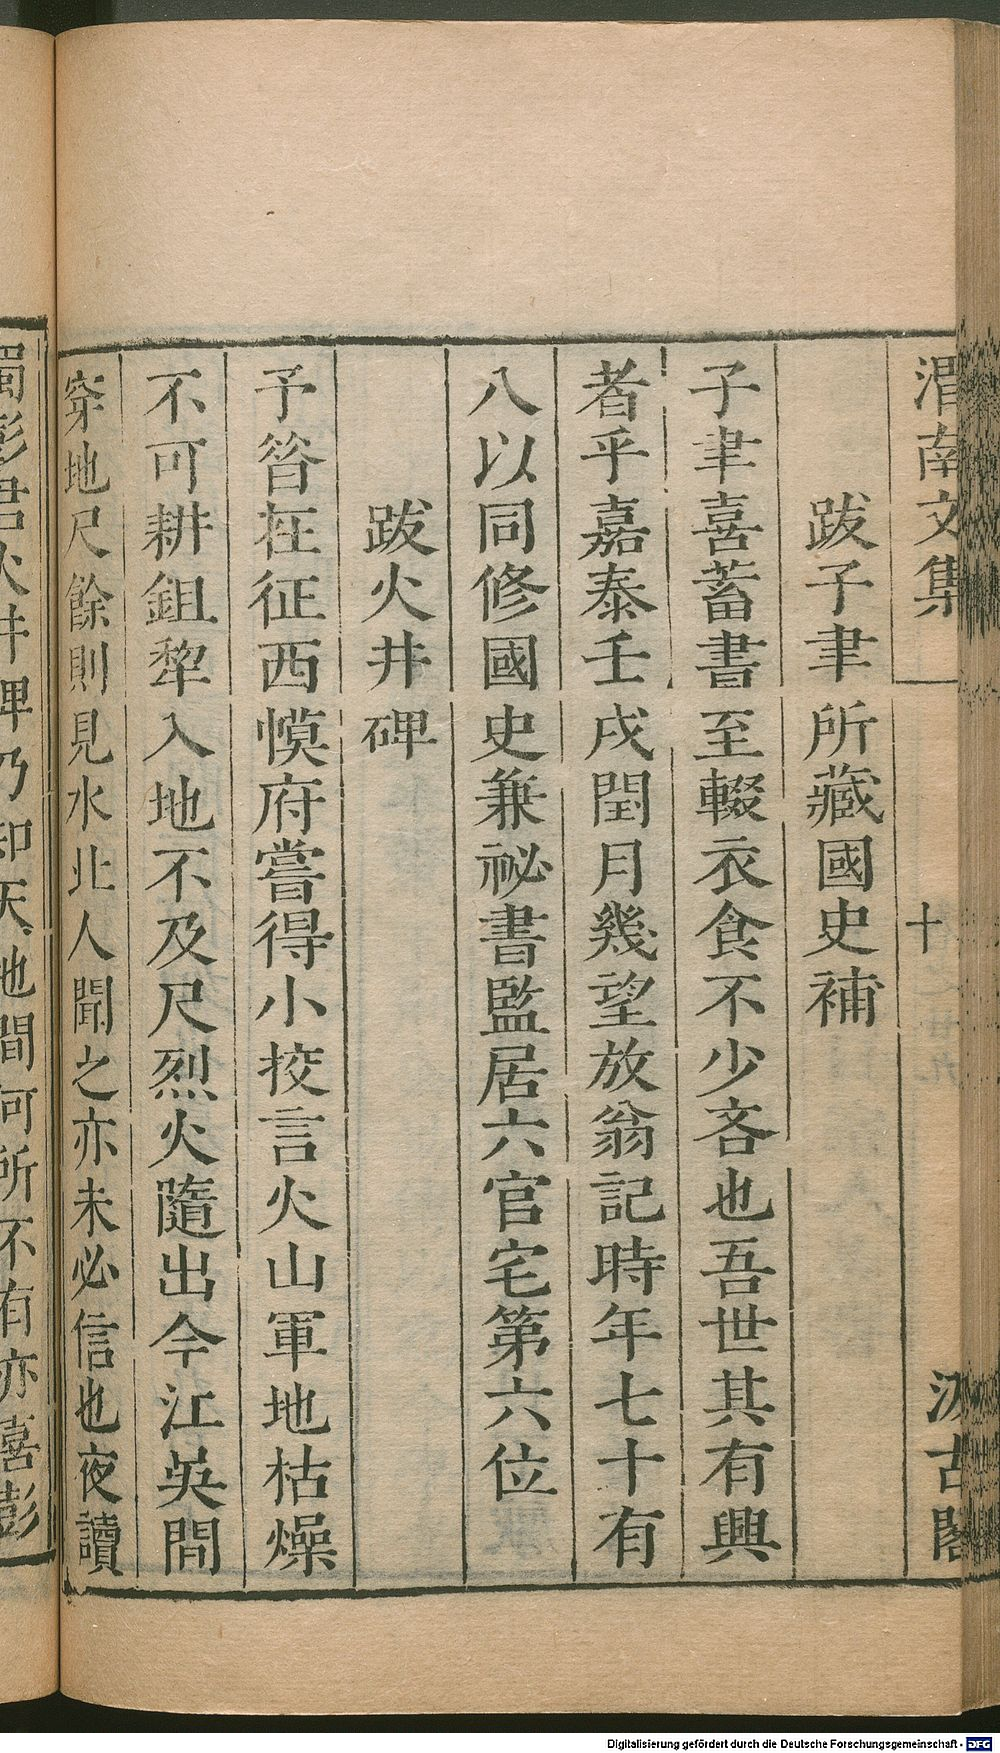 渭南文集 十 汲古閣
跋子聿所藏國史補
子聿喜蓄書至輟衣食不少吝也吾世其有興
者乎嘉泰壬戌閏月幾望放翁記時年七十有
八以同修國史兼祕書監居六官宅第六位
跋火井碑
予昝在征西幙府嘗得小挍言火山軍地枯燥
不可耕鉏犂入地不及尺烈火隨出今江吳間
穿地尺餘則見水北人聞之亦未必信也夜讀
蜀彭君火井碑乃知天地間何所不有亦喜彭
Digitalisierung gefördert durch die Deutsche Forschungsgemeinschaft - DFG